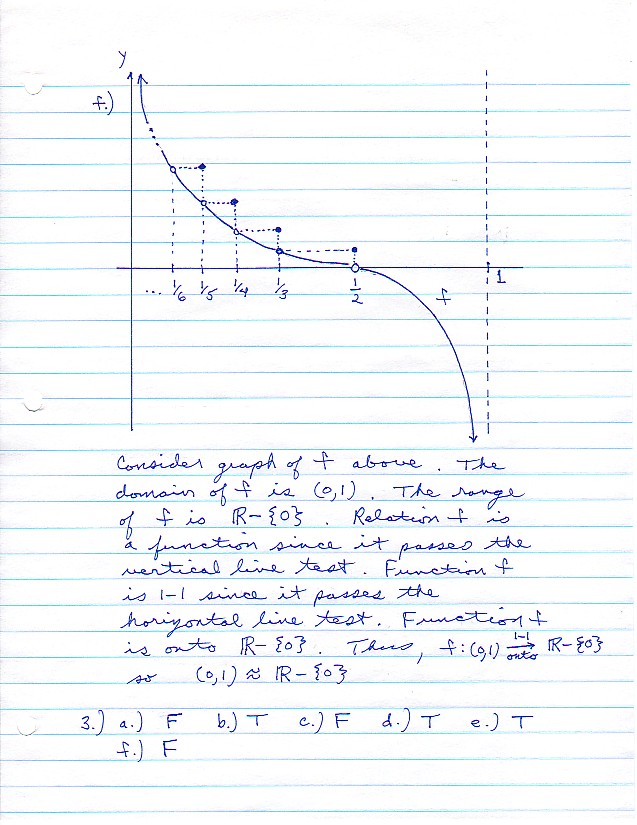 y
f.)
... 1/6 1/5 1/4 1/3 1/2 f 1
Consider graph of f above. The
domain of f is (0,1). The range
of f is ℝ-{0}. Relation f is
a function since it passes the
vertical line test. Function f
is 1-1 since it passes the
horizontal line test. Function f
is onto ℝ-{0}. Thus, f:(0,1) 1-1→onto ℝ-{0}
so (0,1) ≈ ℝ-{0}
3.) a.) F b.) T c.) F d.) T e.) T
f.) F